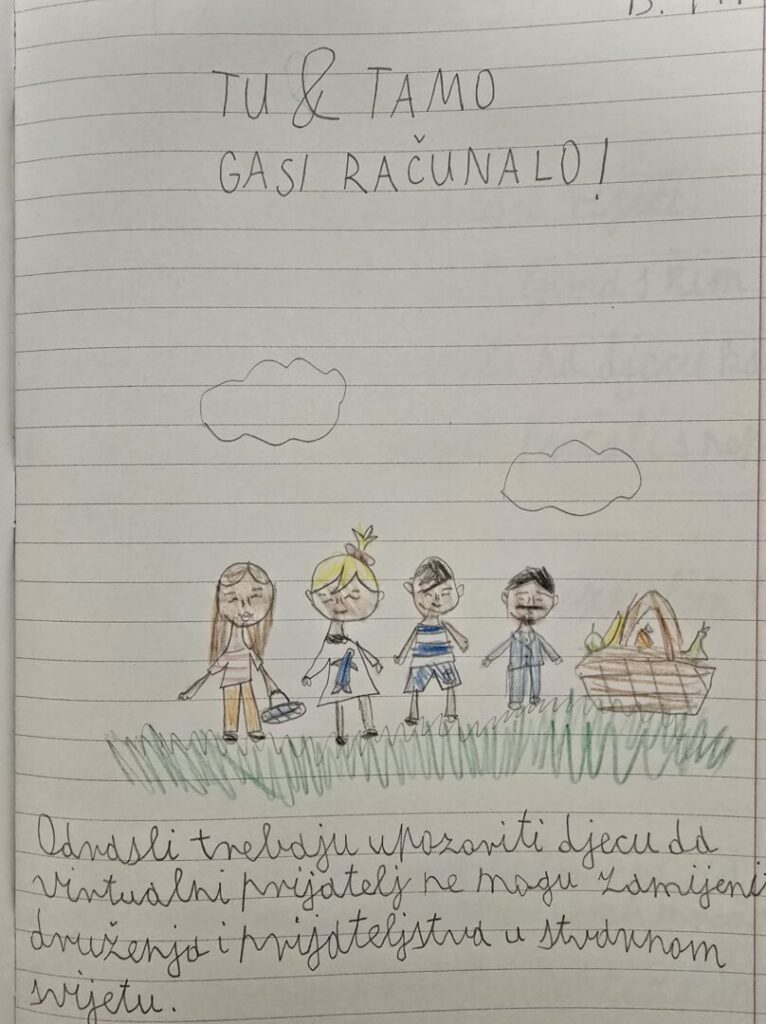 TU & TAMO
GASI RAČUNALO!
Odrasli trebaju upozoriti djecu da
virtualni prijatelj ne mogu zamijeni
druženja i prijateljstva u stvarnom
svijetu.